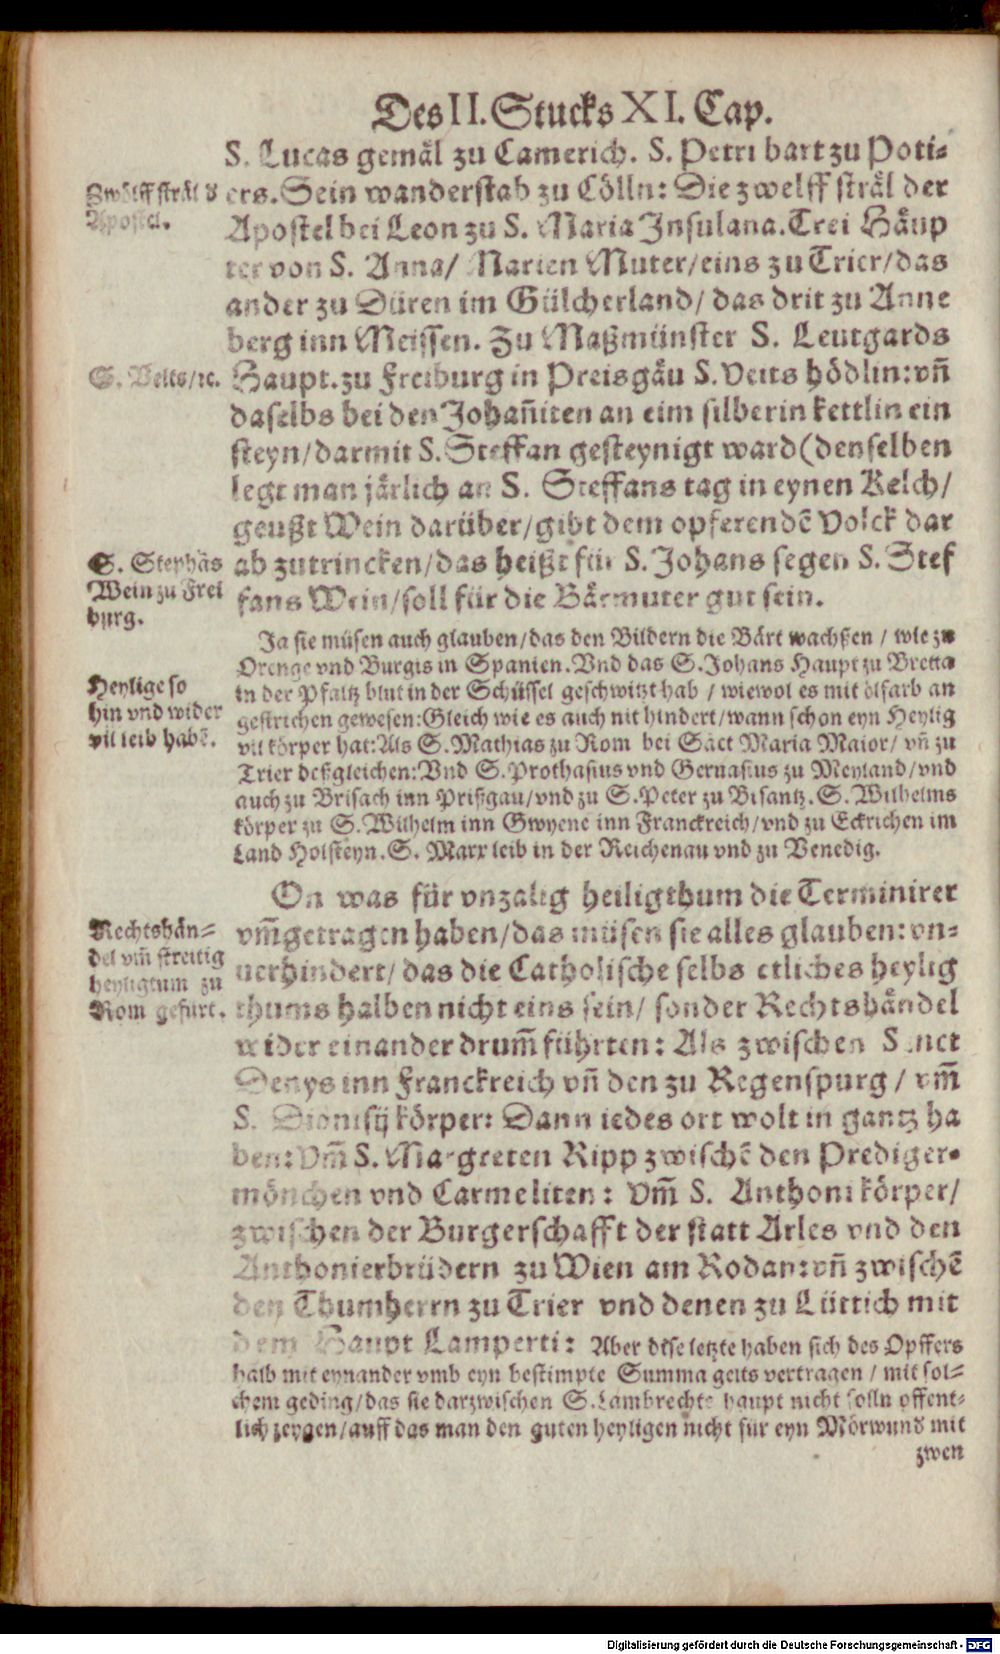 Des II. Stucks XI. Cap.
S. Lucas gemäl zu Camerich. S. Petri bart zu Poti-
ers. Sein wanderstab zu Cölln: Die zwelff sträl der
Apostel bei Leon zu S. Maria Insulana. Trei Häup
ter von S. Anna/ Marien Muter/eins zu Trier/das
ander zu Düren im Gülcherland/ das drit zu Anne
berg inn Meissen. Zu Maßmünster S. Leutgards
Haupt. zu Freiburg in Preisgäu S. Veits hödlin: vñ
daselbs bei den Johañiten an eim silberin kettlin ein
steyn/darmit S. Steffan gesteynigt ward(denselben
legt man järlich an S. Steffans tag in eynen Kelch/
geußt Wein darüber/gibt dem opferendẽ Volck dar
ab zutrincken/das heißt für S. Johans segen S. Stef
fans Wein/soll für die Bärmuter gut sein.
Zwölff sträl d
Apostel.
S. Veits/ıc.
S. Stephãs
Wein zu Frei
burg.
Ja sie müsen auch glauben/das den Bildern die Bärt wachßen / wie zu
Orenge vnd Burgis in Spanien. Vnd das S. Johans Haupt zu Bretta
in der Pfaltz blut in der Schüssel geschwitzt hab / wiewol es mit ölfarb an
gestrichen gewesen: Gleich wie es auch nit hindert/wann schon eyn Heylig
vil körper hat: Als S. Mathias zu Rom bei Sãct Maria Maior/ vñ zu
Trier deßgleichen: Vnd S. Prothasius vnd Geruasius zu Meyland/vnd
auch zu Brisach inn Prißgau/vnd zu S. Peter zu Bisantz. S. Wilhelms
körper zu S. Wilhelm inn Gwyene inn Franckreich/vnd zu Eckrichen im
Land Holsteyn. S. Marx leib in der Reichenau vnd zu Venedig.
Heylige so
hin vnd wider
vil leib habẽ.
On was für vnzalig heiligthum die Terminirer
vm̃getragen haben/das müsen sie alles glauben: vn-
uerhindert/ das die Catholische selbs etliches heylig
thums halben nicht eins sein/ sonder Rechtshändel
wider einander drum̃ führten: Als zwischen Sanct
Denys inn Franckreich vñ den zu Regenspurg / vm̃
S. Dionisij körper: Dann iedes ort wolt in gantz ha
ben: Vm̃ S. Margreten Ripp zwischẽ den Prediger-
mönchen vnd Carmeliten: Vm̃ S. Anthoni körper/
zwischen der Burgerschafft der statt Arles vnd den
Anthonierbrüdern zu Wien am Rodan: vñ zwischẽ
den Thumherrn zu Trier vnd denen zu Lüttich mit
dem Haupt Lamperti: Aber dise letzte haben sich des Opffers
halb mit eynander vmb eyn bestimpte Summa gelts vertragen / mit sol-
chem geding/das sie darzwischen S. Lambrechts haupt nicht solln offent-
lich zeygen/auff das man den guten heyligen nicht für eyn Mörwund mit
Rechtshän-
del vm̃ streitig
heyligtum zu
Rom gefürt.
zwen
Digitalisierung gefördert durch die Deutsche Forschungsgemeinschaft - DFG